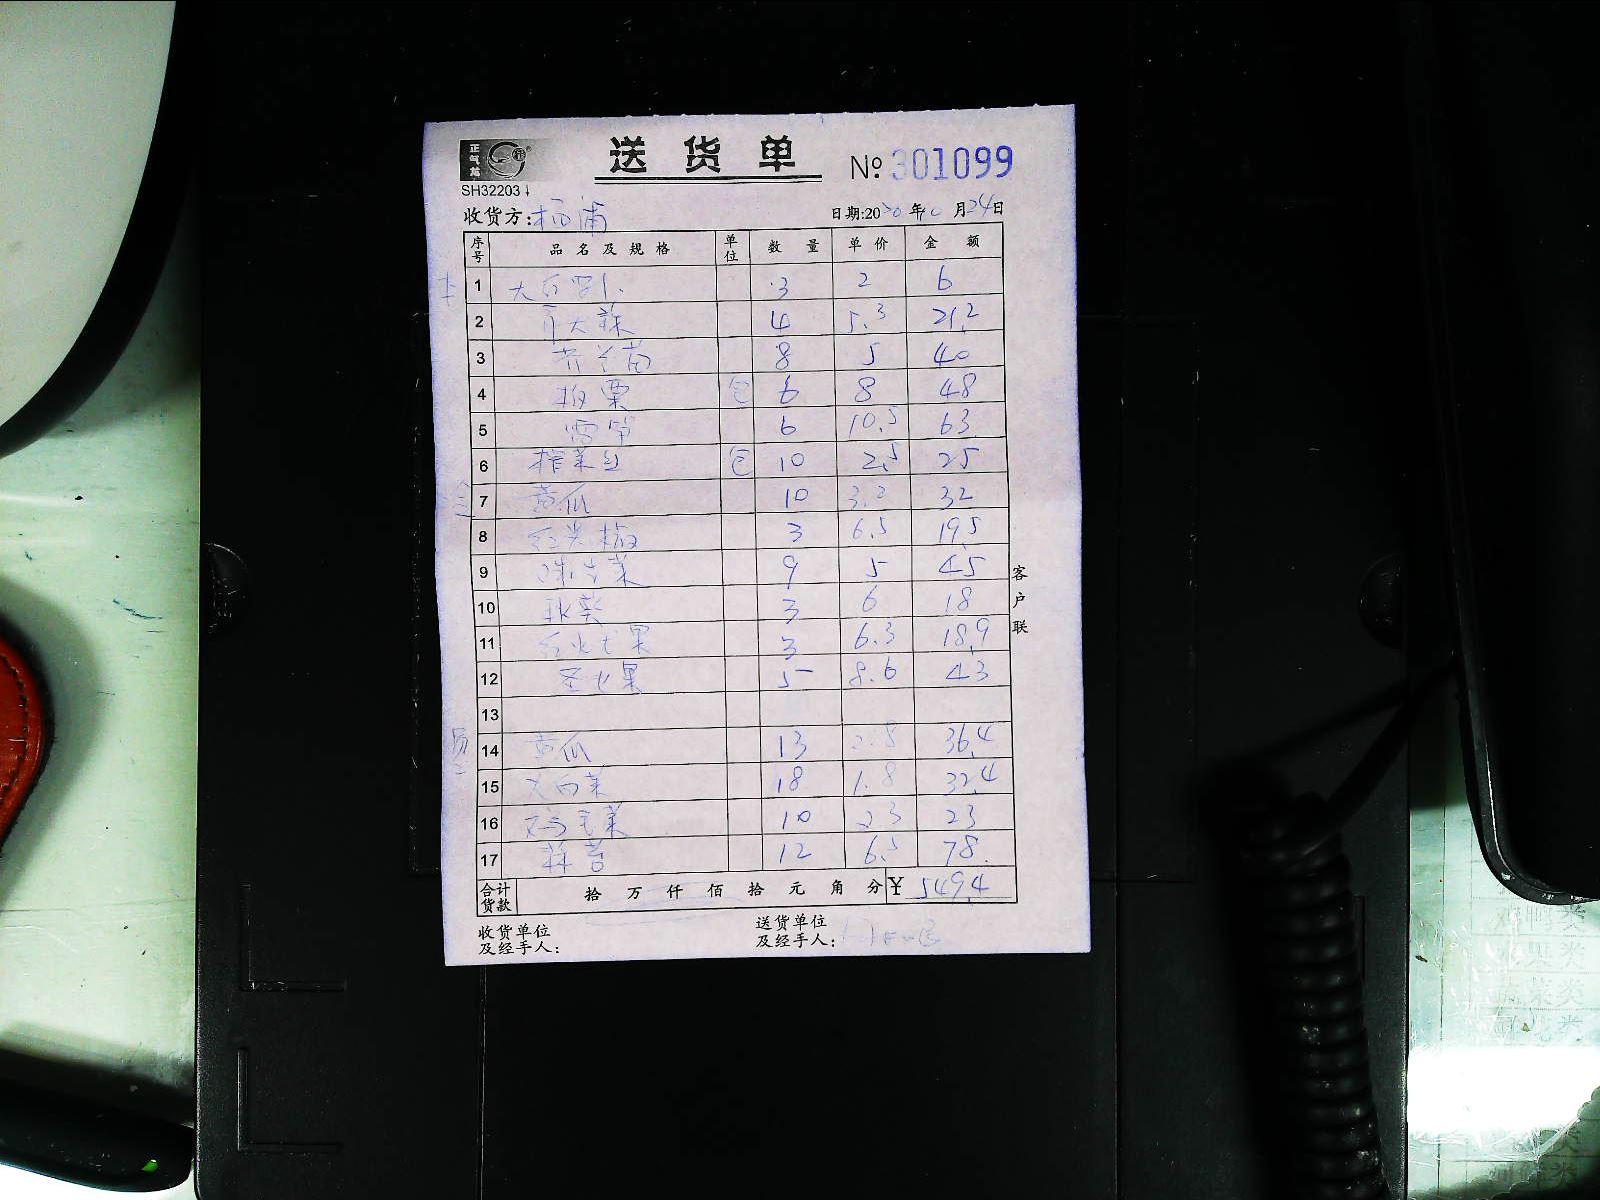 正气
送货单 № 301099
SH32203
收货方: 杨浦 日期:2020年10月24日
序号 品名及规格 单位 数量 单价 金额
1 大白萝卜 3 2 6
2 4 5.3 21.2
3 8 5 40
4 板栗 包 6 8 48
5 6 10.5 63
6 榨菜丝 包 10 2.5 25
7 黄瓜 10 3.2 32
8 红尖椒 3 6.5 19.5
9 9 5 45
10 秋葵 3 6 18
11 红火龙果 3 6.3 18.9
12 圣女果 5 8.6 43
13
14 黄瓜 13 2.8 36.4
15 大白菜 18 1.8 32.4
16 鸡毛菜 10 2.3 23
17 蒜苔 12 6.5 78
合计货款 拾万仟佰拾元角分 ¥ 549.4
收货单位及经手人:
送货单位及经手人:
客户联
果类
菜类